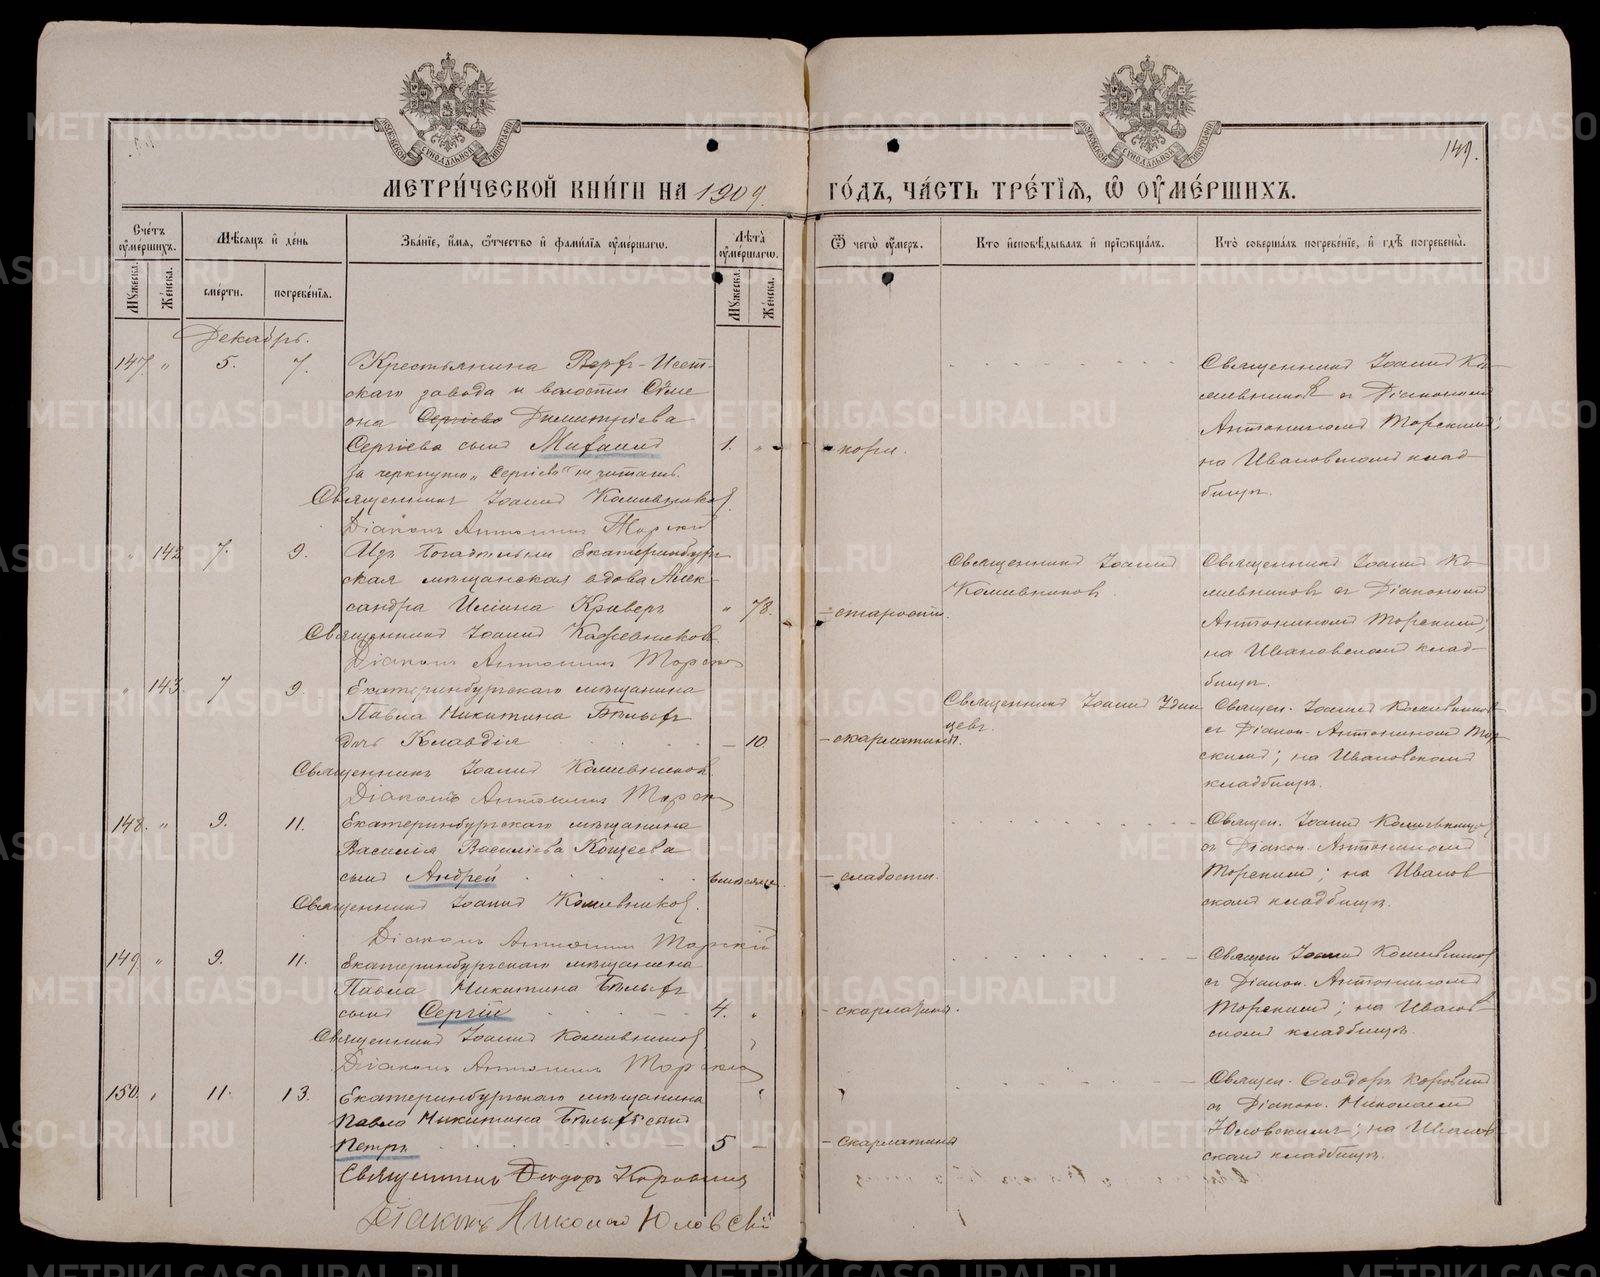 149.
МЕТРИ́ЧЕСКОЙ КНИ́ГИ НА 1909 ГО́ДЪ, ЧА́СТЬ ТРЕ́ТІЯ, Ѿ ОУ҆МЕ́РШИХЪ.
Сче́тъ оу҆ме́ршихъ.
Мꙋжеска.
Же́нска.
Мѣ́сяцъ и҆ де́нь
сме́рти.
погребе́нія.
Зва́ніе, и҆́мя, ѻ҆́тчество и҆ фами́лія оу҆ме́ршагѡ.
Лѣ́та оу҆ме́ршагѡ.
Мꙋжеска.
Же́нска.
Ѿ чегѡ̀ оу҆́меръ.
Кто̀ и҆сповѣ́дывалъ и҆ прїѡбща́лъ.
Кто̀ соверша́лъ погребе́ніе, и҆ гдѣ̀ погребены̀.
Декабрь.
147. " 5. 7.
Крестьянина Верх-Исет-
скаго завода и волости Сѵме
она Сергіева Димитріева
Сергіева сынъ Михаилъ 1. "
зачеркнуто "Сергіева" не читать.
Священникъ Іоаннъ Кошевниковъ
Діаконъ Антонинъ Торскій
кори.
Священникъ Іоаннъ Ко-
шевниковъ съ Діакономъ
Антониномъ Торскимъ;
на Ивановскомъ клад-
бищѣ.
" 142 7. 9.
Изъ богадѣльни Екатеринбург-
ская мѣщанская вдова Алек-
сандра Иліина " 78.
Священникъ Іоаннъ Кошевниковъ
Діаконъ Антонинъ Торскій
старости.
Священникъ Іоаннъ
Кошевниковъ.
Священникъ Іоаннъ Ко-
шевниковъ съ Діакономъ
Антониномъ Торскимъ;
на Ивановскомъ клад-
бищѣ.
" 143. 7 9.
Екатеринбургскаго мѣщанина
Павла Никитина Бѣлыхъ
дочь Клавдія — 10
Священникъ Іоаннъ Кошевниковъ.
Діаконъ Антонинъ Торскій
скарлатины.
Священникъ Іоаннъ
Священ. Іоаннъ Кошевниковъ
съ Діакон. Антониномъ Тор-
скимъ; на Ивановскомъ
кладбищѣ.
148. " 9. 11.
Екатеринбургскаго мѣщанина
Василія Васильева Кощеева
сынъ Андрей 6 мѣсяц.
Священникъ Іоаннъ Кошевниковъ.
Діаконъ Антонинъ Торскій
слабости.
Священ. Іоаннъ Кошевниковъ
съ Діакон. Антониномъ
Торскимъ; на Иванов
скомъ кладбищѣ.
149 " 9. 11.
Екатеринбургскаго мѣщанина
Павла Никитина Бѣлыхъ
сынъ Сергій 4. "
Священникъ Іоаннъ Кошевниковъ
Діаконъ Антонинъ Торскій
скарлатины.
Священ Іоаннъ Кошевниковъ
съ Діакон. Антониномъ
Торскимъ; на Иванов-
скомъ кладбищѣ.
150. " 11. 13.
Екатеринбургскаго мѣщанина
Павла Никитина Бѣлыхъ сынъ
Петръ 5 —
Священникъ Ѳеодоръ Коровинъ
Діаконъ Николай Юловскій
скарлатины
Священ. Ѳеодоръ Коровинъ
съ Діакон. Николаемъ
Юловскимъ; на Иванов-
скомъ кладбищѣ.
METRIKI.GASO-URAL.RU